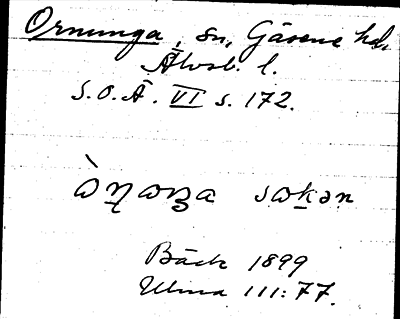 Ornunga, sn, Gäsene hd.
Älvsb. l.
S.O.Ä. VI s. 172.
sokən
Bäck 1899
Ulma 111:77.